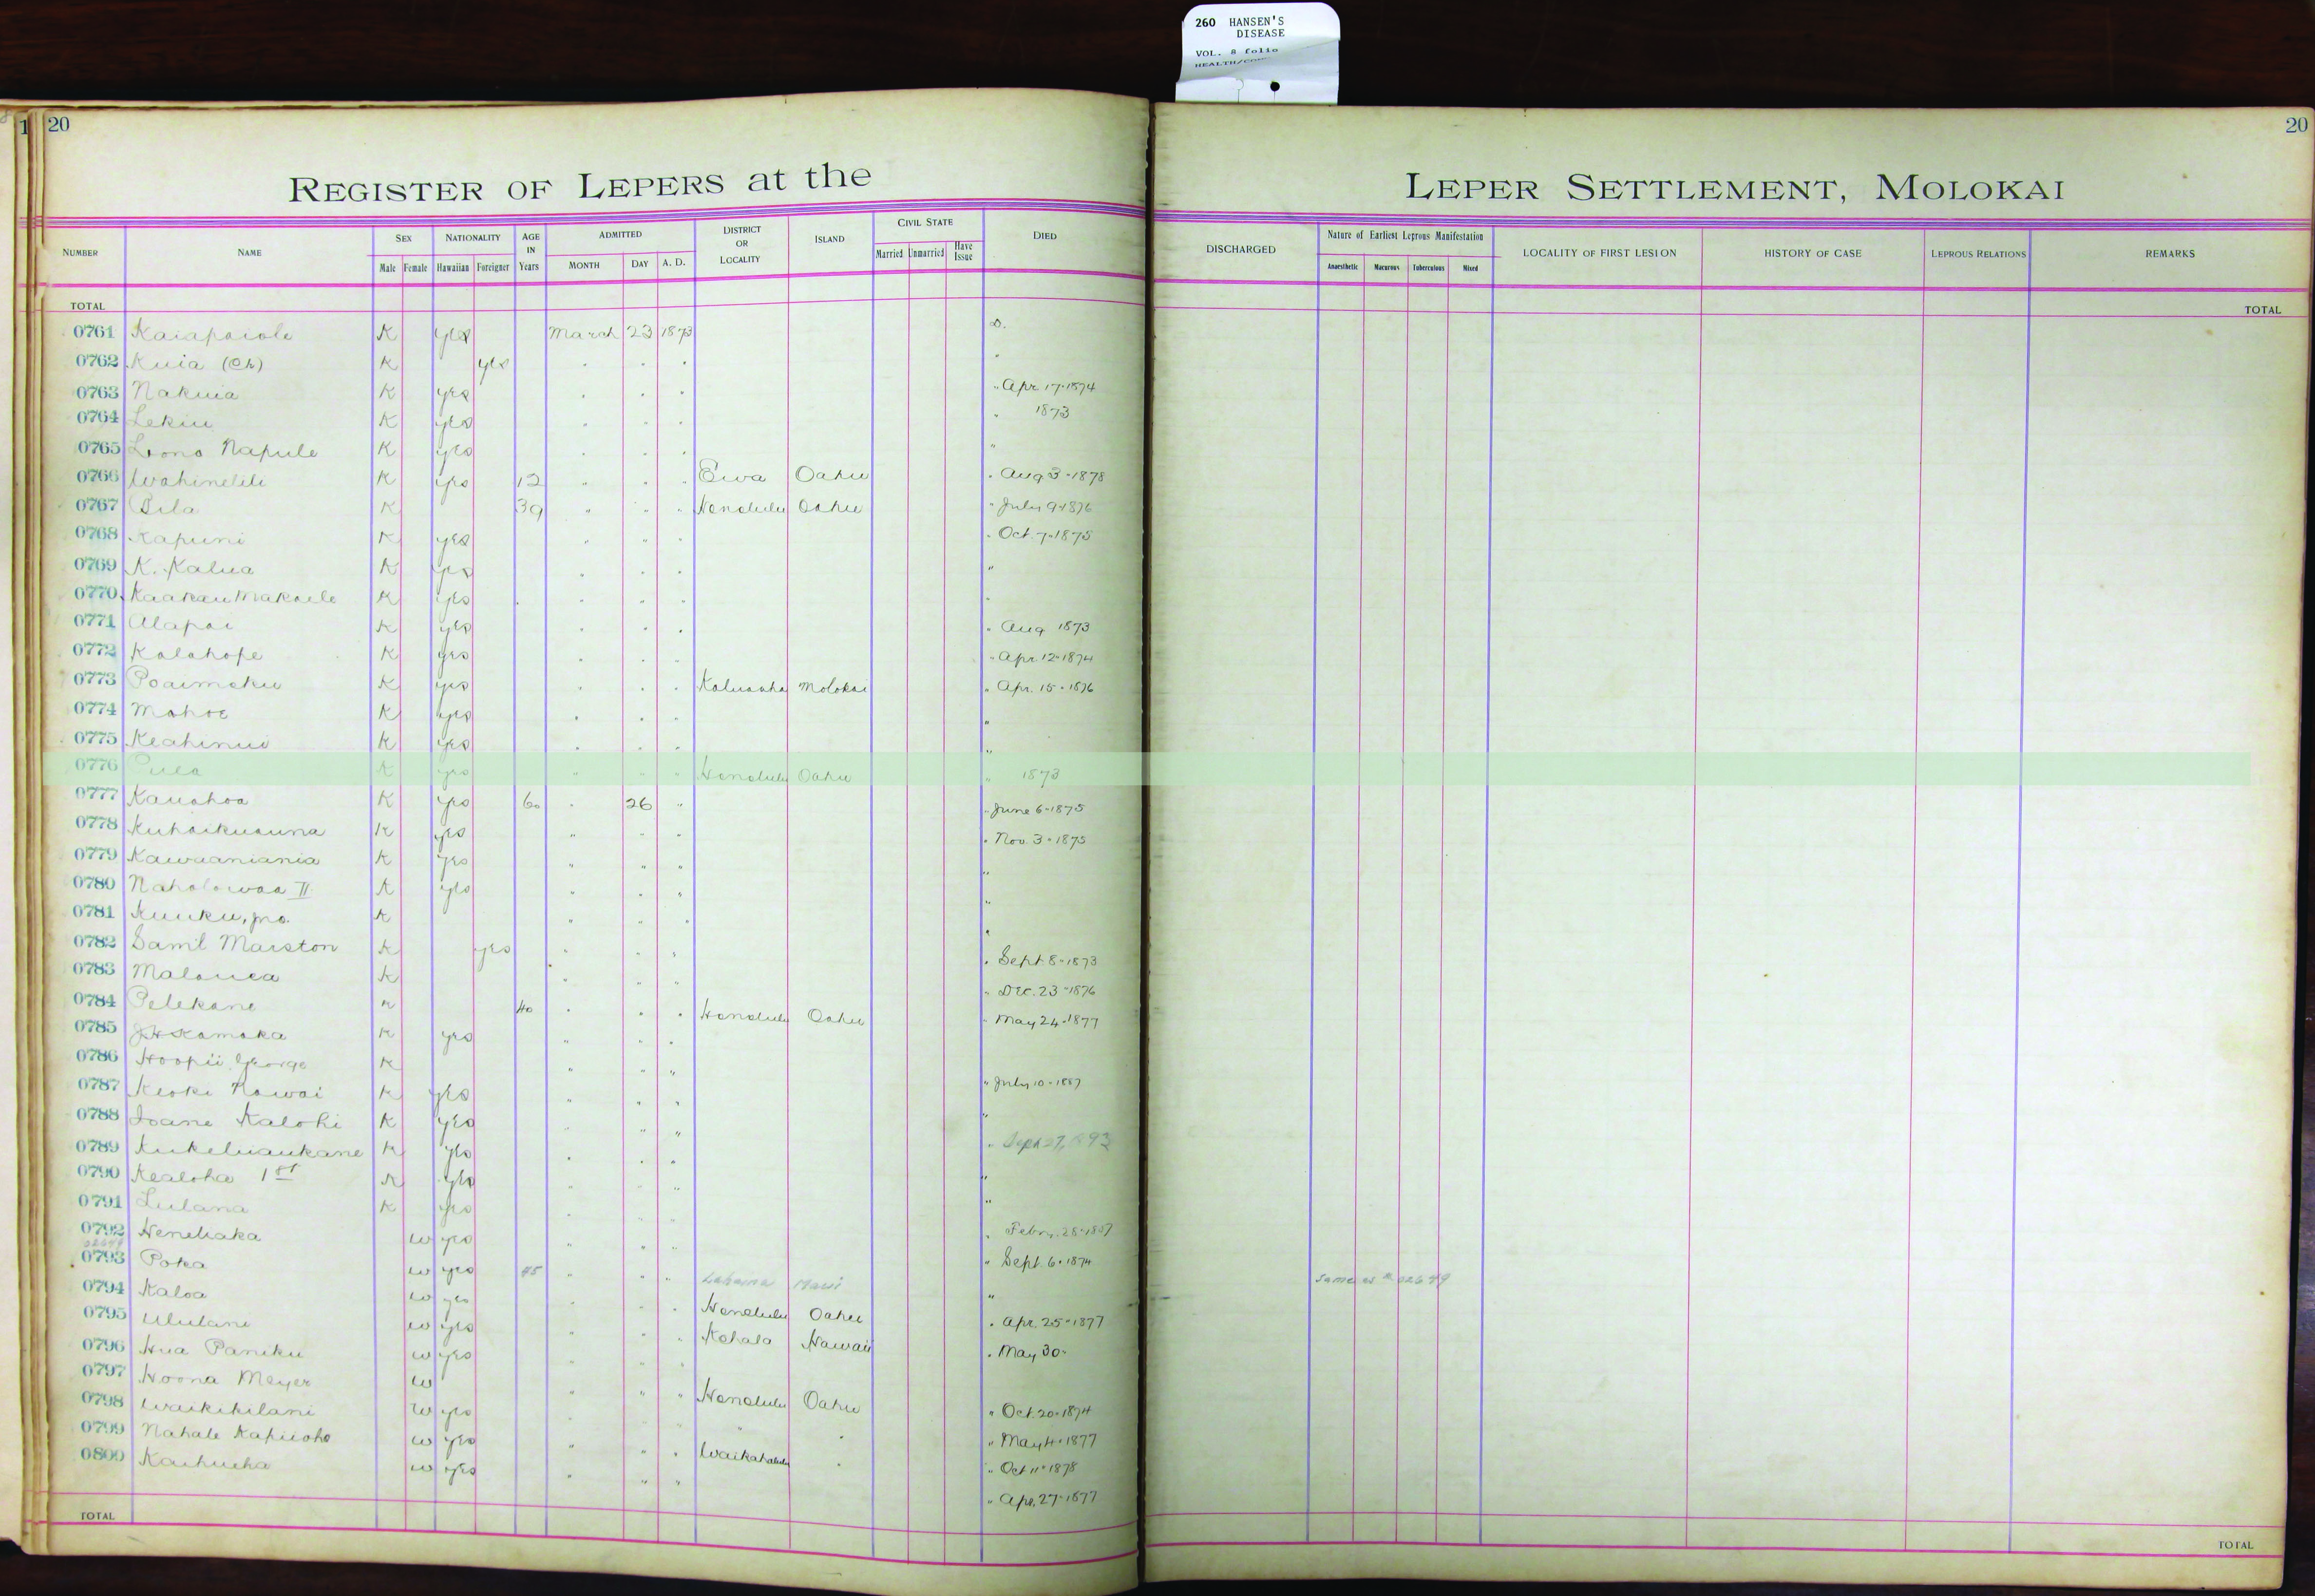 260 HANSEN'S
DISEASE
VOL. 8 folio
20
20
REGISTER OF LEPERS at the LEPER SETTLEMENT, MOLOKAI
NUMBER NAME SEX NATIONALITY AGE IN Years ADMITTED DISTRICT OR LOCALITY ISLAND CIVIL STATE DIED DISCHARGED Nature of Earliest Leprous Manifestation LOCALITY OF FIRST LESION HISTORY OF CASE LEPROUS RELATIONS REMARKS
Male Female Hawaiian Foreigner MONTH DAY A. D. Married Unmarried Have Issue Anaesthetic Macurous Tuberculous Mixed
TOTAL TOTAL
0761 Kaiapaiole K yes March 23 1873 D.
0762 Kuia (Ch) K yes " " " "
0763 Nakuia K yes " " " " Apr 17-1874
0764 Lekiu K yes " " " " 1873
0765 Lono Napule K yes " " " "
0766 Wahinelili K yes 12 " " " Ewa Oahu " Aug 3-1878
0767 Pila K 39 " " " Honolulu Oahu " July 9-1876
0768 Kapuni K yes " " " " Oct. 7-1875
0769 K. Kalua K yes " " " "
0770 Kaakau Makaele K yes " " " "
0771 Alapai K yes " " " " Aug 1873
0772 Kalahope K yes " " " " Apr. 12-1874
0773 Poaimoku K yes " " " Kaluaaha Molokai " Apr. 15-1876
0774 Mahoe K yes " " " "
0775 Keahinui K yes " " " "
0776 Pula K yes " " " Honolulu Oahu " 1873
0777 Kauahoa K yes 60 " 26 " " June 6-1875
0778 Kuhaikuauna K yes " " " " Nov. 3-1875
0779 Kawaaniania K yes " " " "
0780 Naholowaa II K yes " " " "
0781 Kuuku, jno. K " " " "
0782 Saml Marston K yes " " " " Sept 8-1873
0783 Malouea K " " " " Dec. 23-1876
0784 Pelekane K 40 " " " Honolulu Oahu " May 24-1877
0785 J H Kamaka K yes " " "
0786 Hoopii George K " " " " July 10-1887
0787 Keoki Nawai K yes " " " "
0788 Ioane Kalohi K yes " " " " Sept 27, 1893
0789 Kukeluaukane K yes " " " "
0790 Kealoha 1st K yes " " " "
0791 Lulana K yes " " " " Febr. 28-1887
0792 Heneliaka W yes " " " " Sept. 6-1874
02679
0793 Poka W yes 45 " " " Lahaina Maui " same as # 02679
0794 Kaloa W yes " " " Honolulu Oahu " Apr. 25-1877
0795 Ululani W yes " " " Kohala Hawaii " May 30-
0796 Hua Paniku W yes " " "
0797 Hoona Meyer W " " " Honolulu Oahu " Oct. 20-1874
0798 Waikikilani W yes " " " " " May 4-1877
0799 Nahale Kapuoho W yes " " " Waikahalulu " " Oct 11-1878
0800 Kaihueha W yes " " " " Apr. 27-1877
TOTAL TOTAL